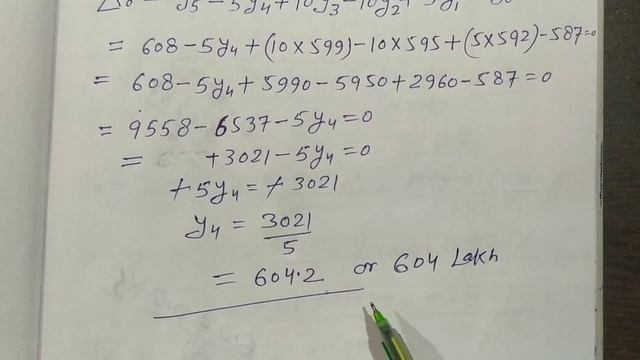 y5 - 5y4 + 10y3 - 10y2 + 5y1
= 608 - 5y4 + (10 × 599) - 10 × 595 + (5 × 592) - 587 = 0
= 608 - 5y4 + 5990 - 5950 + 2960 - 587 = 0
= 9558 - 6537 - 5y4 = 0
= +3021 - 5y4 = 0
+5y4 = +3021
y4 = 3021/5
= 604.2 or 604 Lakh